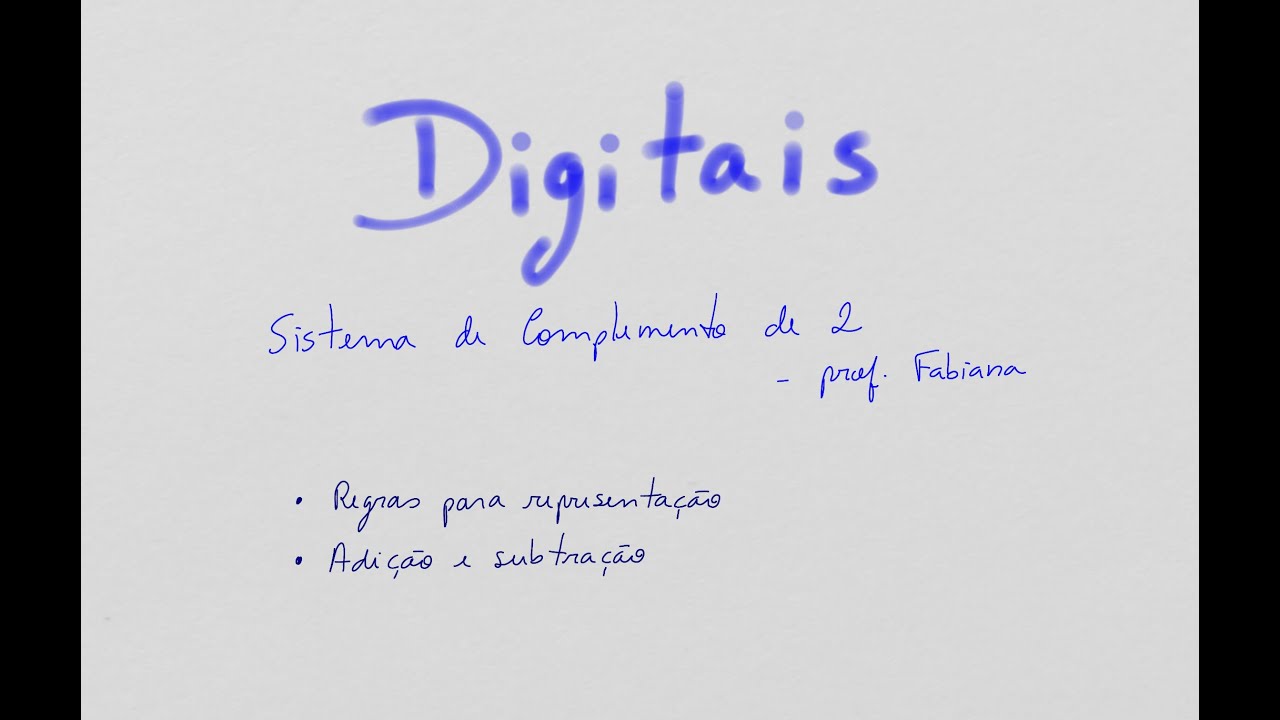 Digitais
Sistema de Complemento de 2
- prof. Fabiana
• Regras para representação
• Adição e subtração